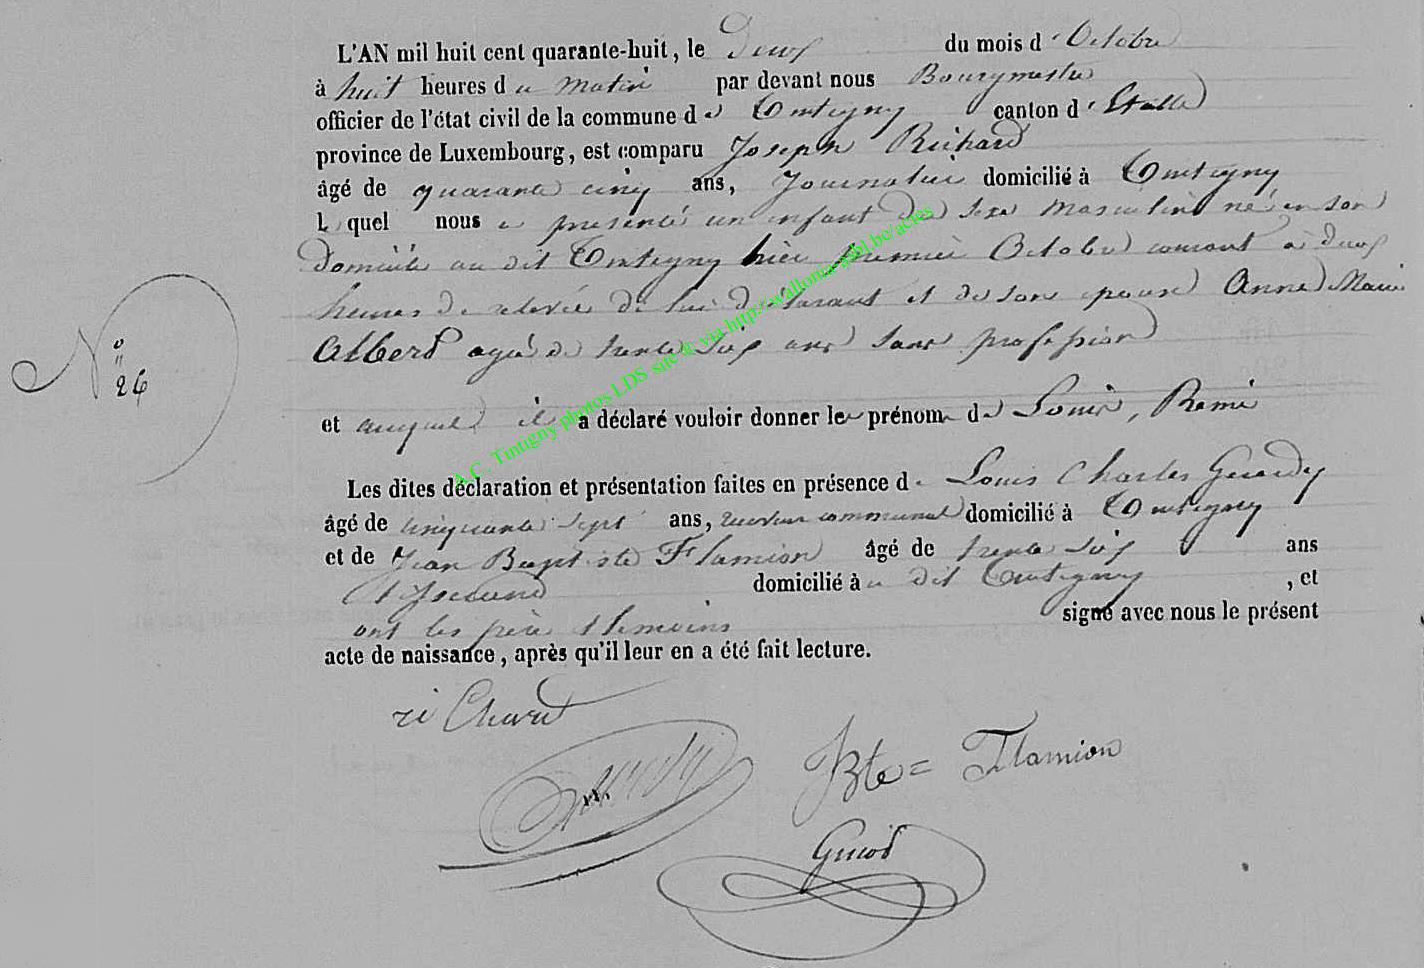 L'AN mil huit cent quarante-huit, le Deux du mois d'Octobre
à huit heures du matin par devant nous Bourgmestre
officier de l'état civil de la commune de Tintigny canton d'Etalle
province de Luxembourg, est comparu Joseph Richard
âgé de quarante cinq ans, Journalier domicilié à Tintigny
Lequel nous a présenté un enfant du sexe masculin né en son
domicile au dit Tintigny hier premier Octobre courant à deux
heures de relevée de lui déclarant et de son épouse Anne Marie
Albert agée de trente six ans sans profession
N° 26
et auquel il a déclaré vouloir donner les prénoms de Louis, Remi
Les dites déclaration et présentation faites en présence de Louis Charles Gerardy
âgé de cinquante sept ans, receveur communal domicilié à Tintigny
et de Jean Baptiste Flamion âgé de trente six ans
domicilié au dit Tintigny, et
ont les père et témoins signé avec nous le présent
acte de naissance, après qu'il leur en a été fait lecture.
ri Chard
JBte= Flamion
A.C. Tintigny photos LDS site via http://wallonia-asbl.be/actes